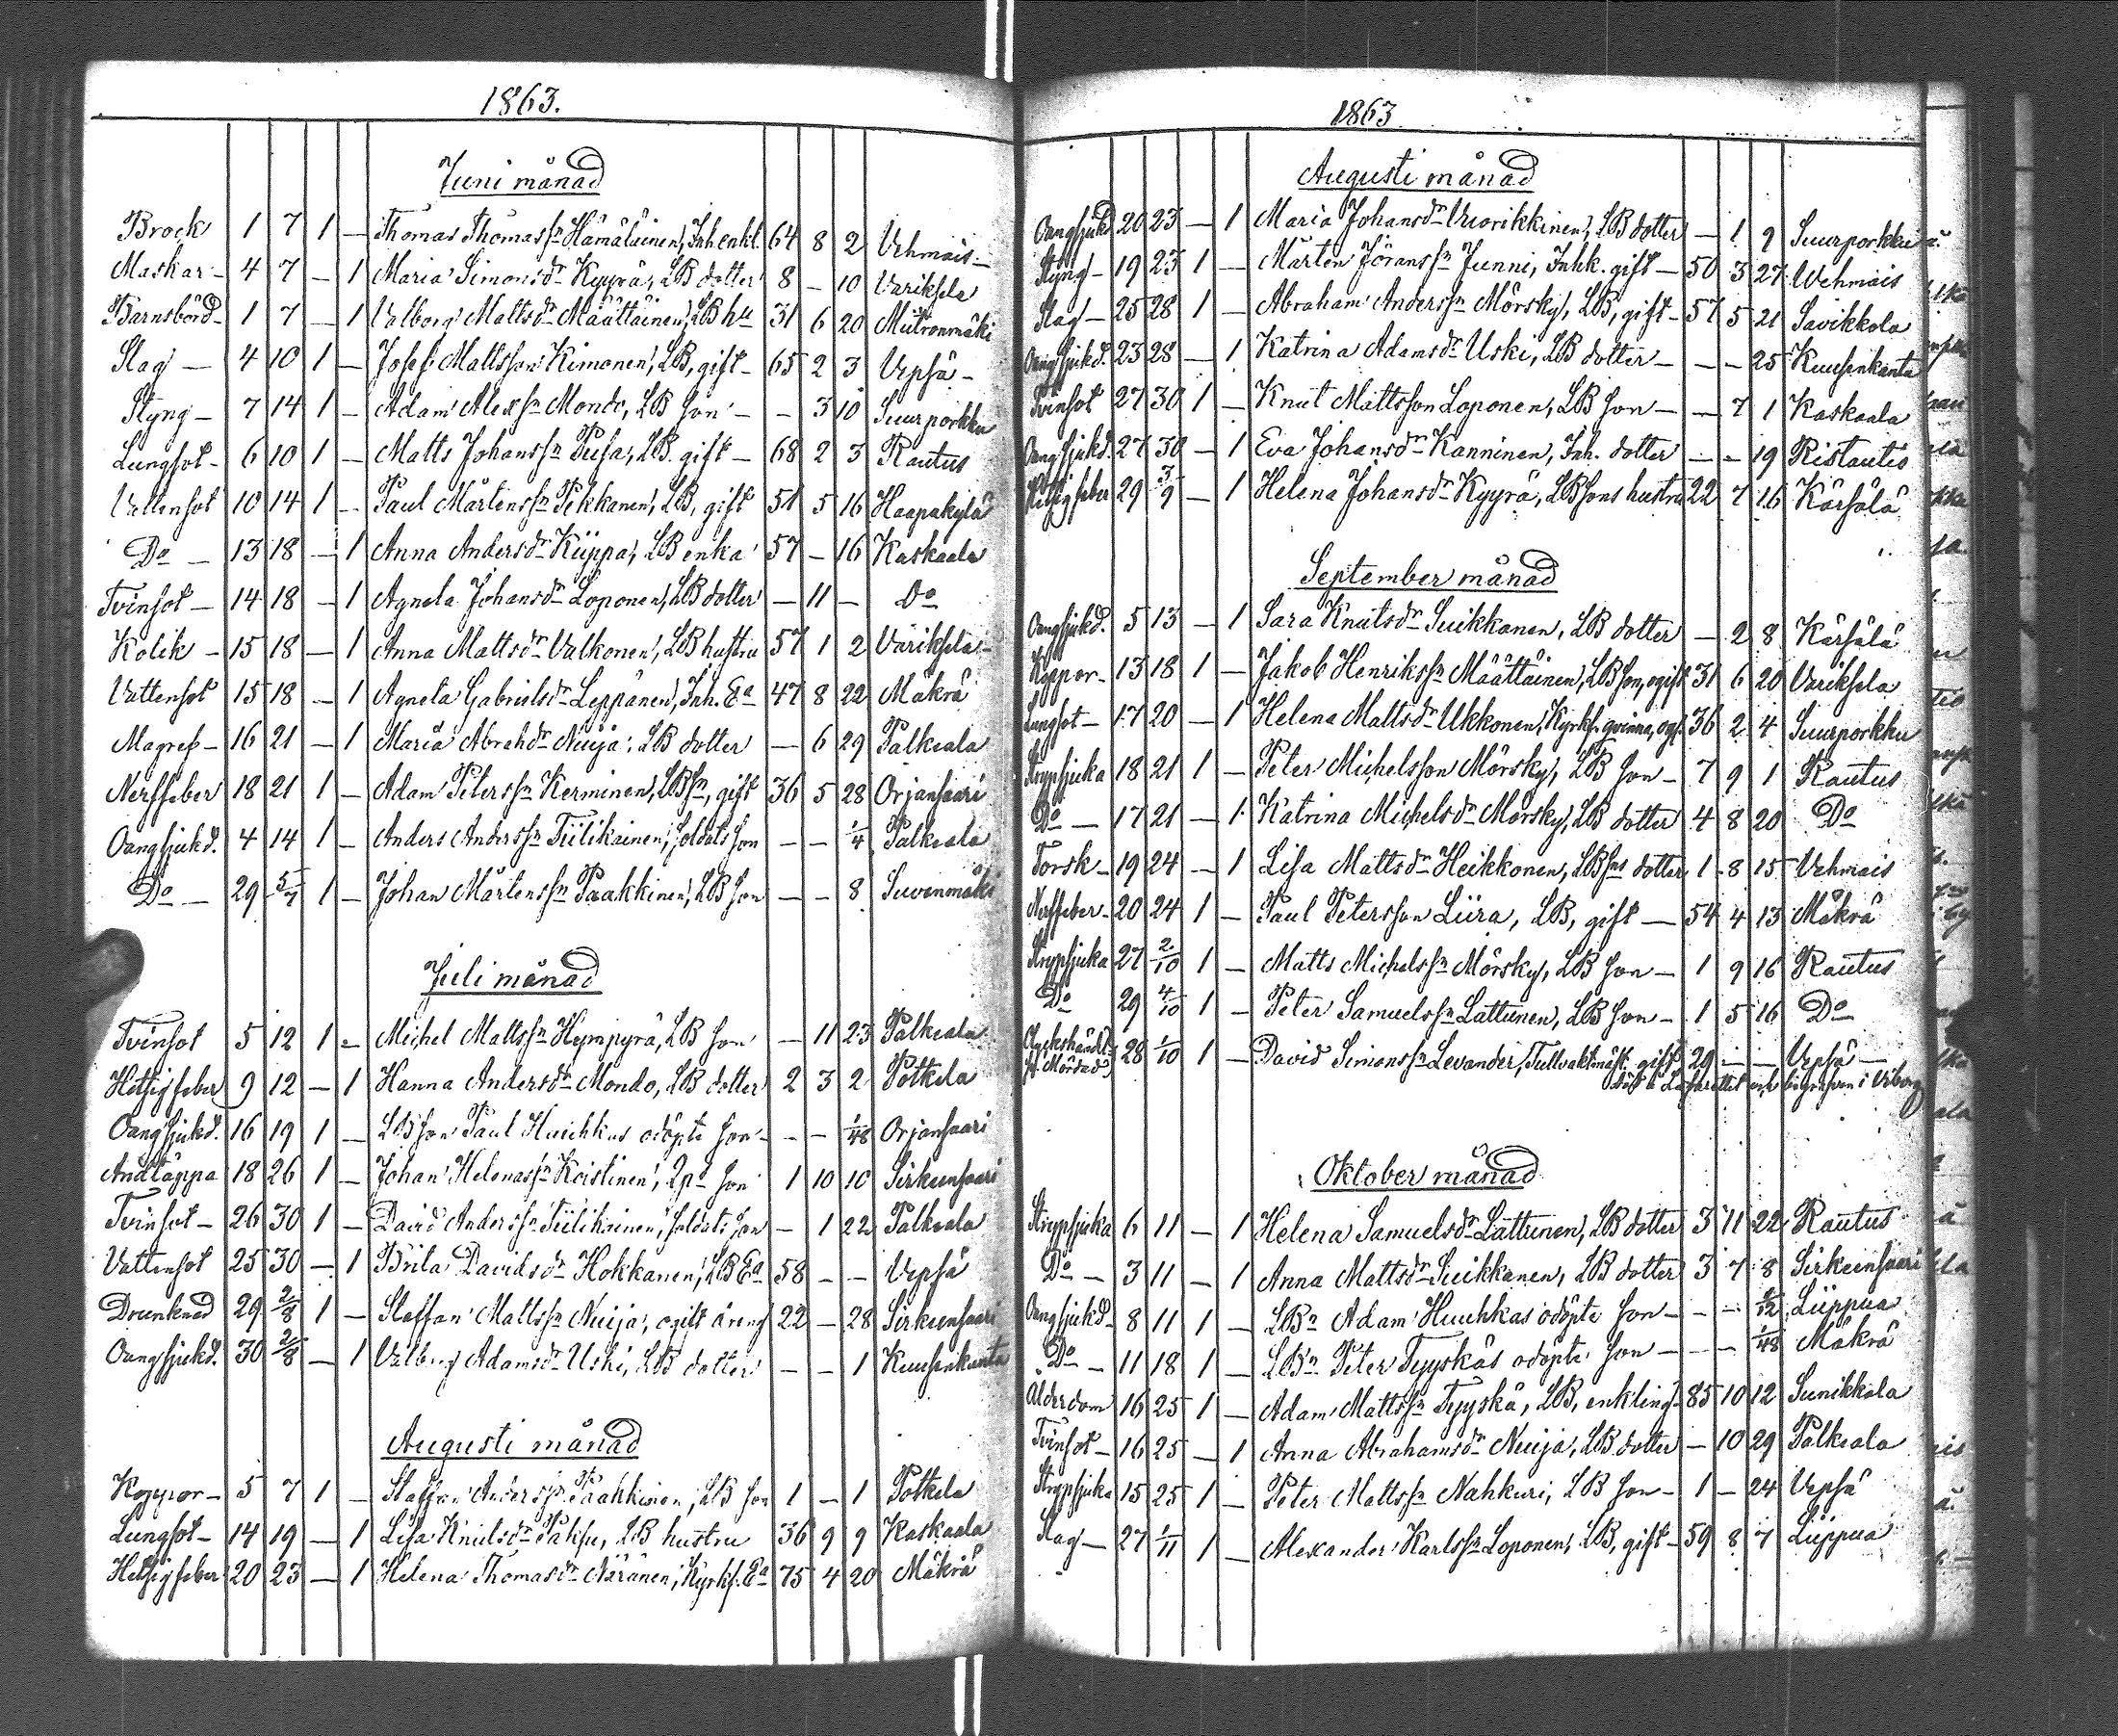 1863.
Juni månad
Brock 1 7 1 — Thomas Thomass:n Hämäläinen, Inh enkl. 64 8 2 Vehmais —
Maskar — 4 7 — 1 Maria Simonsd:r Kyyrä, LB dotter 8 — 10 Variksela
Barnsbörd — 1 7 — 1 Valborg Mattsd:r Määttäinen, LB hu 31 6 20 Mütronmäki
Slag — 4 10 1 — Josef Mattsson Kimonen, LB, gift — 65 2 3 Vepsä —
Styng — 7 14 1 — Adam Alexs:n Mondo, LB son — — 3 10 Suurporkku
Lungsot — 6 10 1 — Matts Johanss:n Pusa, LB. gift — 68 2 3 Rautus
Vattensot 10 14 1 — Paul Mårtenss:n Pekkanen, LB, gift 51 5 16 Haapakylä
D:o — 13 18 — 1 Anna Andersd:r Kiippa, LB enka 57 — 16 Kaskaala
Tvinsot — 14 18 — 1 Agneta Johansd:r Loponen, LB dotter — 11 — D:o
Kolik — 15 18 — 1 Anna Mattsd:r Valkonen, LB hustru 57 1 2 Variksela —
Vattensot 15 18 — 1 Agneta Gabrielsd:r Leppänen, Inh. E:a 47 8 22 Mäkrä
Magref — 16 21 — 1 Maria Abrahd:r Nuija, LB dotter — 6 29 Palkeala
Nerffeber 18 21 1 — Adam Peterss:n Kerminen, LBs:n, gift 36 5 28 Orjansaari
Oangsjukd. 4 14 1 — Anders Anderss:n Tiilikainen, soldats son — — 1/4 Palkeala
D:o — 29 5/7 1 — Johan Mårtenss:n Paakkinen, LB son — — 8 Suvenmäki
Juli månad
Tvinsot 5 12 1 — Michel Mattss:n Hympyrä, LB son — 11 23 Palkeala
Hetsigfeber 9 12 — 1 Hanna Andersd:r Mondo, LB dotter 2 3 2 Potkela
Oangsjukd. 16 19 1 — LBson Paul Huuhkas odöpte son — — — 1/48 Orjansaari
Andtäppa 18 26 1 — Johan Helenass:n Koistinen, Lp:o son 1 10 10 Sirkeensaari
Tvinsot — 26 30 1 — David Anderss:n Tiilikainen, soldats son — 1 22 Palkeala
Vattensot 25 30 — 1 Brita Davidsd:r Hokkanen, LB E:a 58 — — Vepsä
Drunknad 29 2/8 1 — Staffan Mattss:n Nuija, ogift dreng 22 — 28 Sirkeensaari
Oangsjukd. 30 2/8 — 1 Valborg Adamsd:r Uski, LB dotter — — 1 Kuusenkanta
Augusti månad
Koppor — 5 7 1 — Staffan Anderss:n Paakkinen, LB son 1 — 1 Potkela
Lungsot — 14 19 — 1 Lisa Knutsd:r Paksu, LB hustru 36 9 9 Kaskaala
Hetsigfeber 20 23 — 1 Helena Thomasd:r Näränen, Kyrks. E:a 75 4 20 Mäkrä
1863
Augusti månad
Oangsjukd 20 23 — 1 Maria Johansd:r Vuorikkinen, LB dotter — 1 9 Suurporkku
Styng — 19 23 1 — Mårten Jöranss:n Junni, Inhk. gift — 50 3 27 Wehmais
Slag — 25 28 1 — Abraham Anderss:n Mörsky, LB, gift — 57 5 21 Savikkola
Oangsjukd. 23 28 — 1 Katrina Adamsd:r Uski, LB dotter — — — 25 Kuusenkanta
Tvinsot 27 30 1 — Knut Mattsson Loponen, LB son — — 7 1 Kaskaala
Oangsjukd. 27 30 — 1 Eva Johansd:r Kanninen, Inh. dotter — — 19 Ristautis
Hetsigfeber 29 3/9 — 1 Helena Johansd:r Kyyrä, LBsons hustru 22 7 16 Kärsälä
September månad
Oangsjukd. 5 13 — 1 Sara Knutsd:r Suikkanen, LB dotter — 2 8 Kärsälä
Koppor — 13 18 1 — Jakob Henrikss:n Määttäinen, LB son, ogift 31 6 20 Variksela
Lungsot — 17 20 — 1 Helena Mattsd:r Ukkonen, Kyrks. qvinna, ogf. 36 2 4 Suurporkku
Strypsjuka 18 21 1 — Peter Michelsson Mörsky, LB son — 7 9 1 Rautus
D:o — 17 21 — 1 Katrina Michelsd:r Mörsky, LB dotter 4 8 20 D:o
Torsk — 19 24 — 1 Lisa Mattsd:r Heikkonen, LBsns dotter 1 8 15 Vehmais
Nerffeber — 20 24 1 — Paul Petersson Liira, LB, gift — 54 4 13 Mäkrä
Strypsjuka 27 2/10 1 — Matts Michelss:n Mörsky, LB son — 1 9 16 Rautus
D:o 29 4/10 1 — Peter Samuelss:n Lattunen, LB son — 1 5 16 D:o
Olyckshändt. (:Mördad:) 28 1/10 1 — David Simonss:n Levander, Tullvaktmäst. gift 29 — — Vepsä —
död å Lasarettet och begrafven i Viborg
Oktober månad
Strypsjuka 6 11 — 1 Helena Samuelsd:r Lattunen, LB dotter 3 11 22 Rautus
D:o — 3 11 — 1 Anna Mattsd:r Suikkanen, LB dotter 3 7 8 Sirkeinsaari
Oangsjukd — 8 11 1 — LB:n Adam Huuhkas odöpte son — — — 1/12 Liippua
D:o — 11 18 1 — LB:n Peter Tyyskäs odöpte son — — — 1/48 Mäkrä
Ålderdom 16 25 1 — Adam Mattss:n Tyyskä, LB, enkling 85 10 12 Sunikkala
Tvinsot — 16 25 — 1 Anna Abrahamsd:r Nuija, LB dotter — 10 29 Palkeala
Strypsjuka 15 25 1 — Peter Mattss:n Nahkuri, LB son — 1 — 24 Vepsä
Slag — 27 1/11 1 — Alexander Karlss:n Loponen, LB, gift — 59 8 7 Liippua